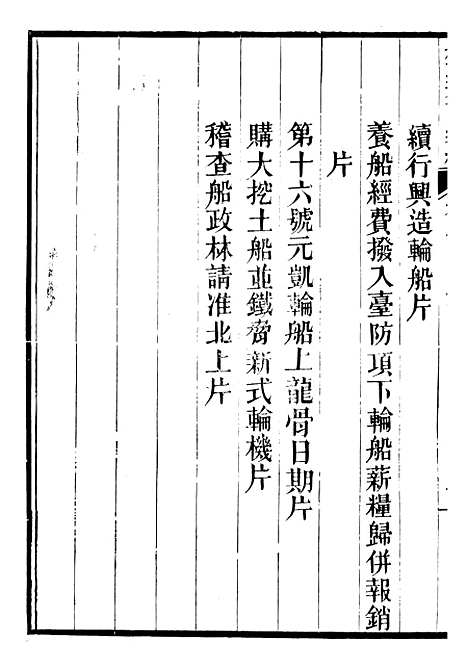 續行興造輪船片
養船經費撥入臺防項下輪船薪糧歸併報銷
片
第十六號元凱輪船上龍骨日期片
購大挖土船並鐵脅新式輪機片
稽查船政林請准北上片